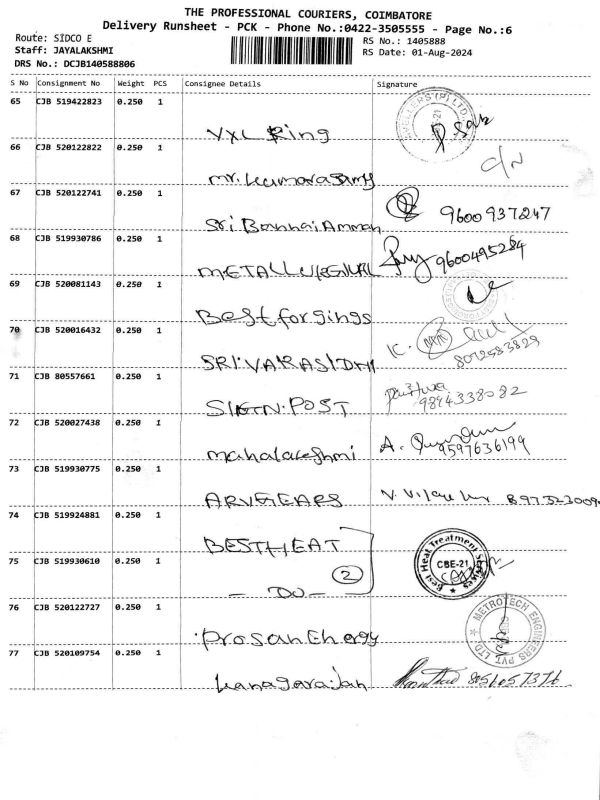 THE PROFESSIONAL COURIERS, COIMBATORE
Delivery Runsheet - PCK - Phone No.:0422-3505555 - Page No.:6
Route: SIDCO E
RS No.: 1405888
Staff: JAYALAKSHMI
RS Date: 01-Aug-2024
DRS No.: DCJB140588806
S No Consignment No Weight PCS Consignee Details Signature
65 CJB 519422823 0.250 1
VXL Ring
66 CJB 520122822 0.250 1
C/N
mr. kumarasamy
67 CJB 520122741 0.250 1
Sri Bannai Amman 9600937247
68 CJB 519930786 0.250 1
9600495284
69 CJB 520081143 0.250 1
Best forgings
70 CJB 520016432 0.250 1
SRI.VARASIDHI 8072583829
71 CJB 80557661 0.250 1
SIGN.POST 9894338082
72 CJB 520027438 0.250 1
mahalakshmi 9597636199
73 CJB 519930775 0.250 1
ARVGEARS
74 CJB 519924881 0.250 1
BESTHEAT
Best Heat Treatment Services
CBE-21
75 CJB 519930610 0.250 1
- DO - 2
76 CJB 520122727 0.250 1
METROTECH ENGINEERS PVT LTD
Prosan Energy
77 CJB 520109754 0.250 1
kanagarajan 8056057376